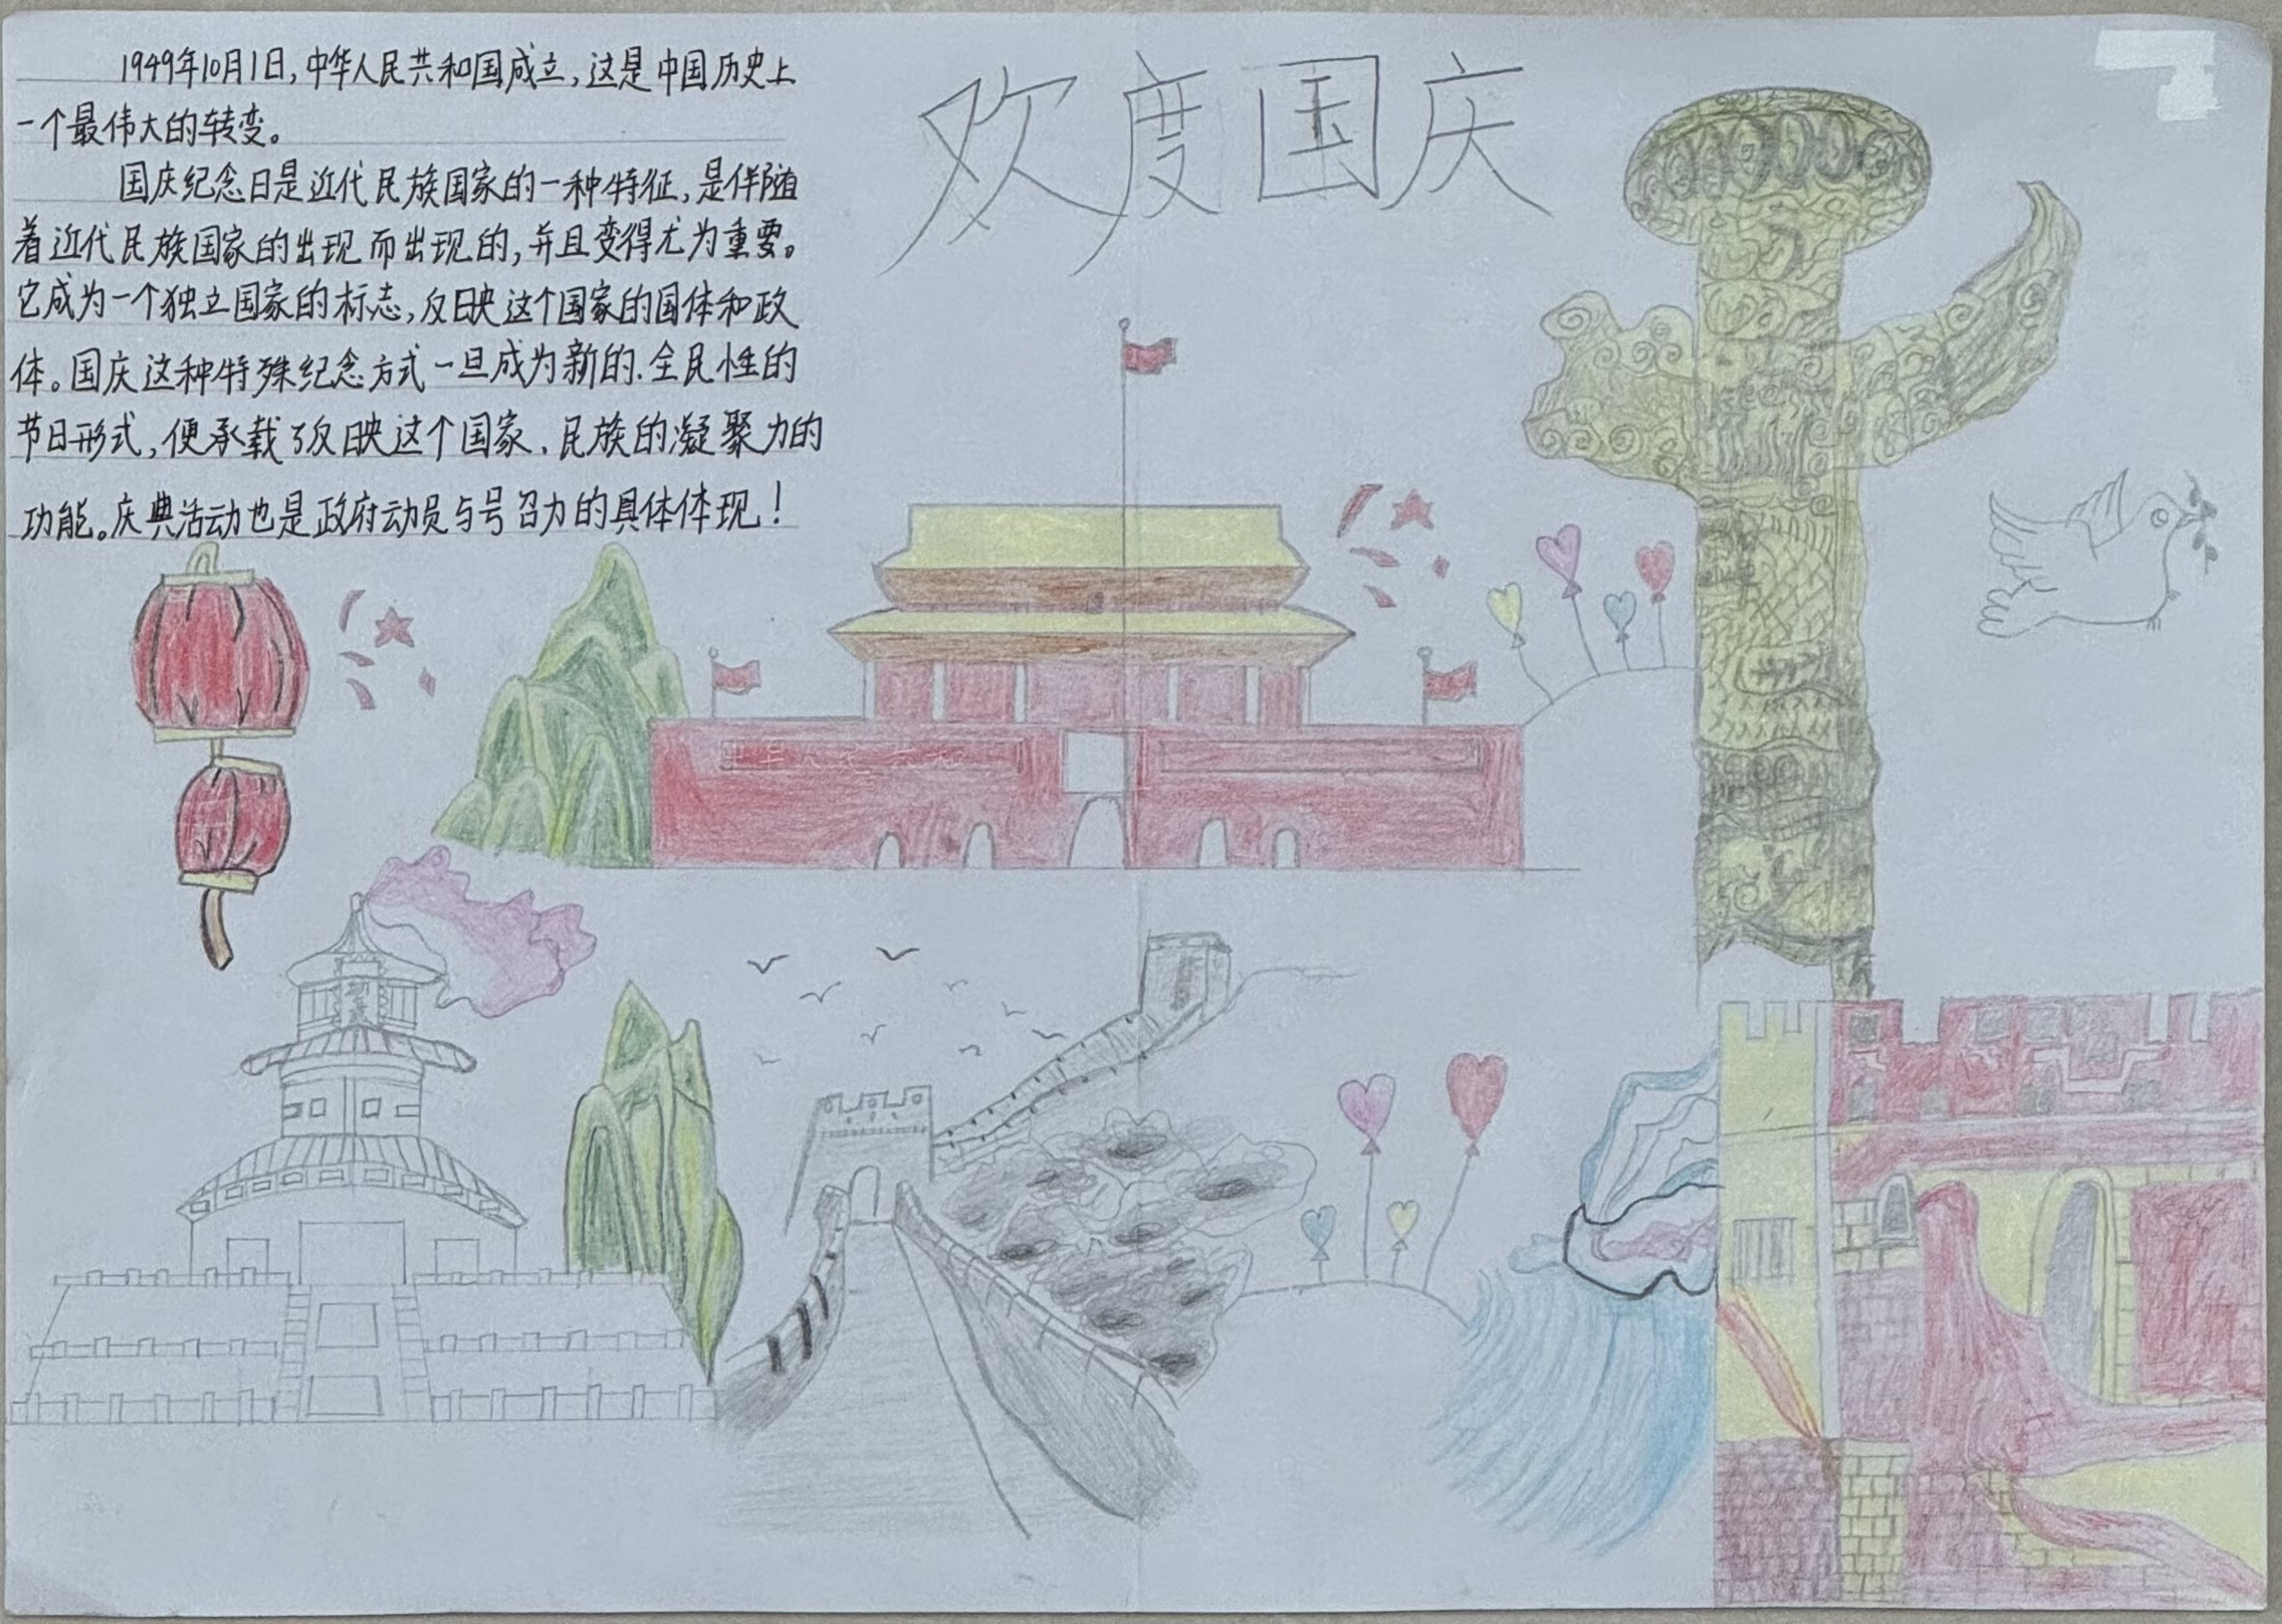 1949年10月1日,中华人民共和国成立,这是中国历史上
一个最伟大的转变。
国庆纪念日是近代民族国家的一种特征,是伴随
着近代民族国家的出现而出现的,并且变得尤为重要。
它成为一个独立国家的标志,反映这个国家的国体和政
体。国庆这种特殊纪念方式一旦成为新的、全民性的
节日形式,便承载了反映这个国家、民族的凝聚力的
功能。庆典活动也是政府动员与号召力的具体体现!
欢度国庆
中华人民共和